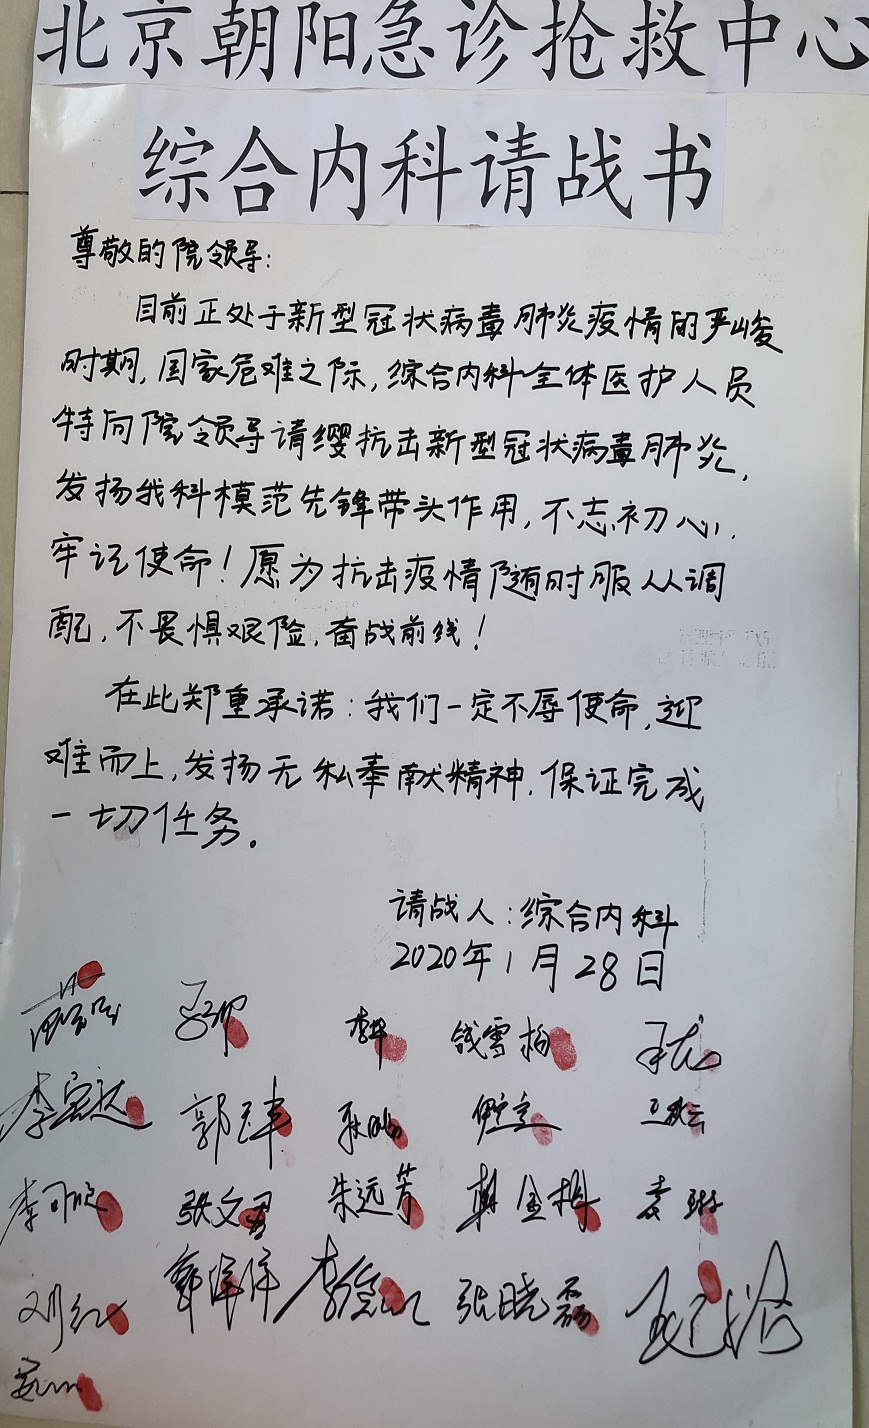 北京朝阳急诊抢救中心
综合内科请战书
尊敬的院领导:
目前正处于新型冠状病毒肺炎疫情的严峻
时期,国家危难之际,综合内科全体医护人员
特向院领导请缨抗击新型冠状病毒肺炎,
发扬我科模范先锋带头作用,不忘初心,
牢记使命!愿为抗击疫情随时服从调
配,不畏惧艰险,奋战前线!
在此郑重承诺:我们一定不辱使命,迎
难而上,发扬无私奉献精神,保证完成
一切任务。
请战人:综合内科
2020年1月28日
钱雪梅
张文君 朱远芳
刘红 郭洋洋 张晓磊